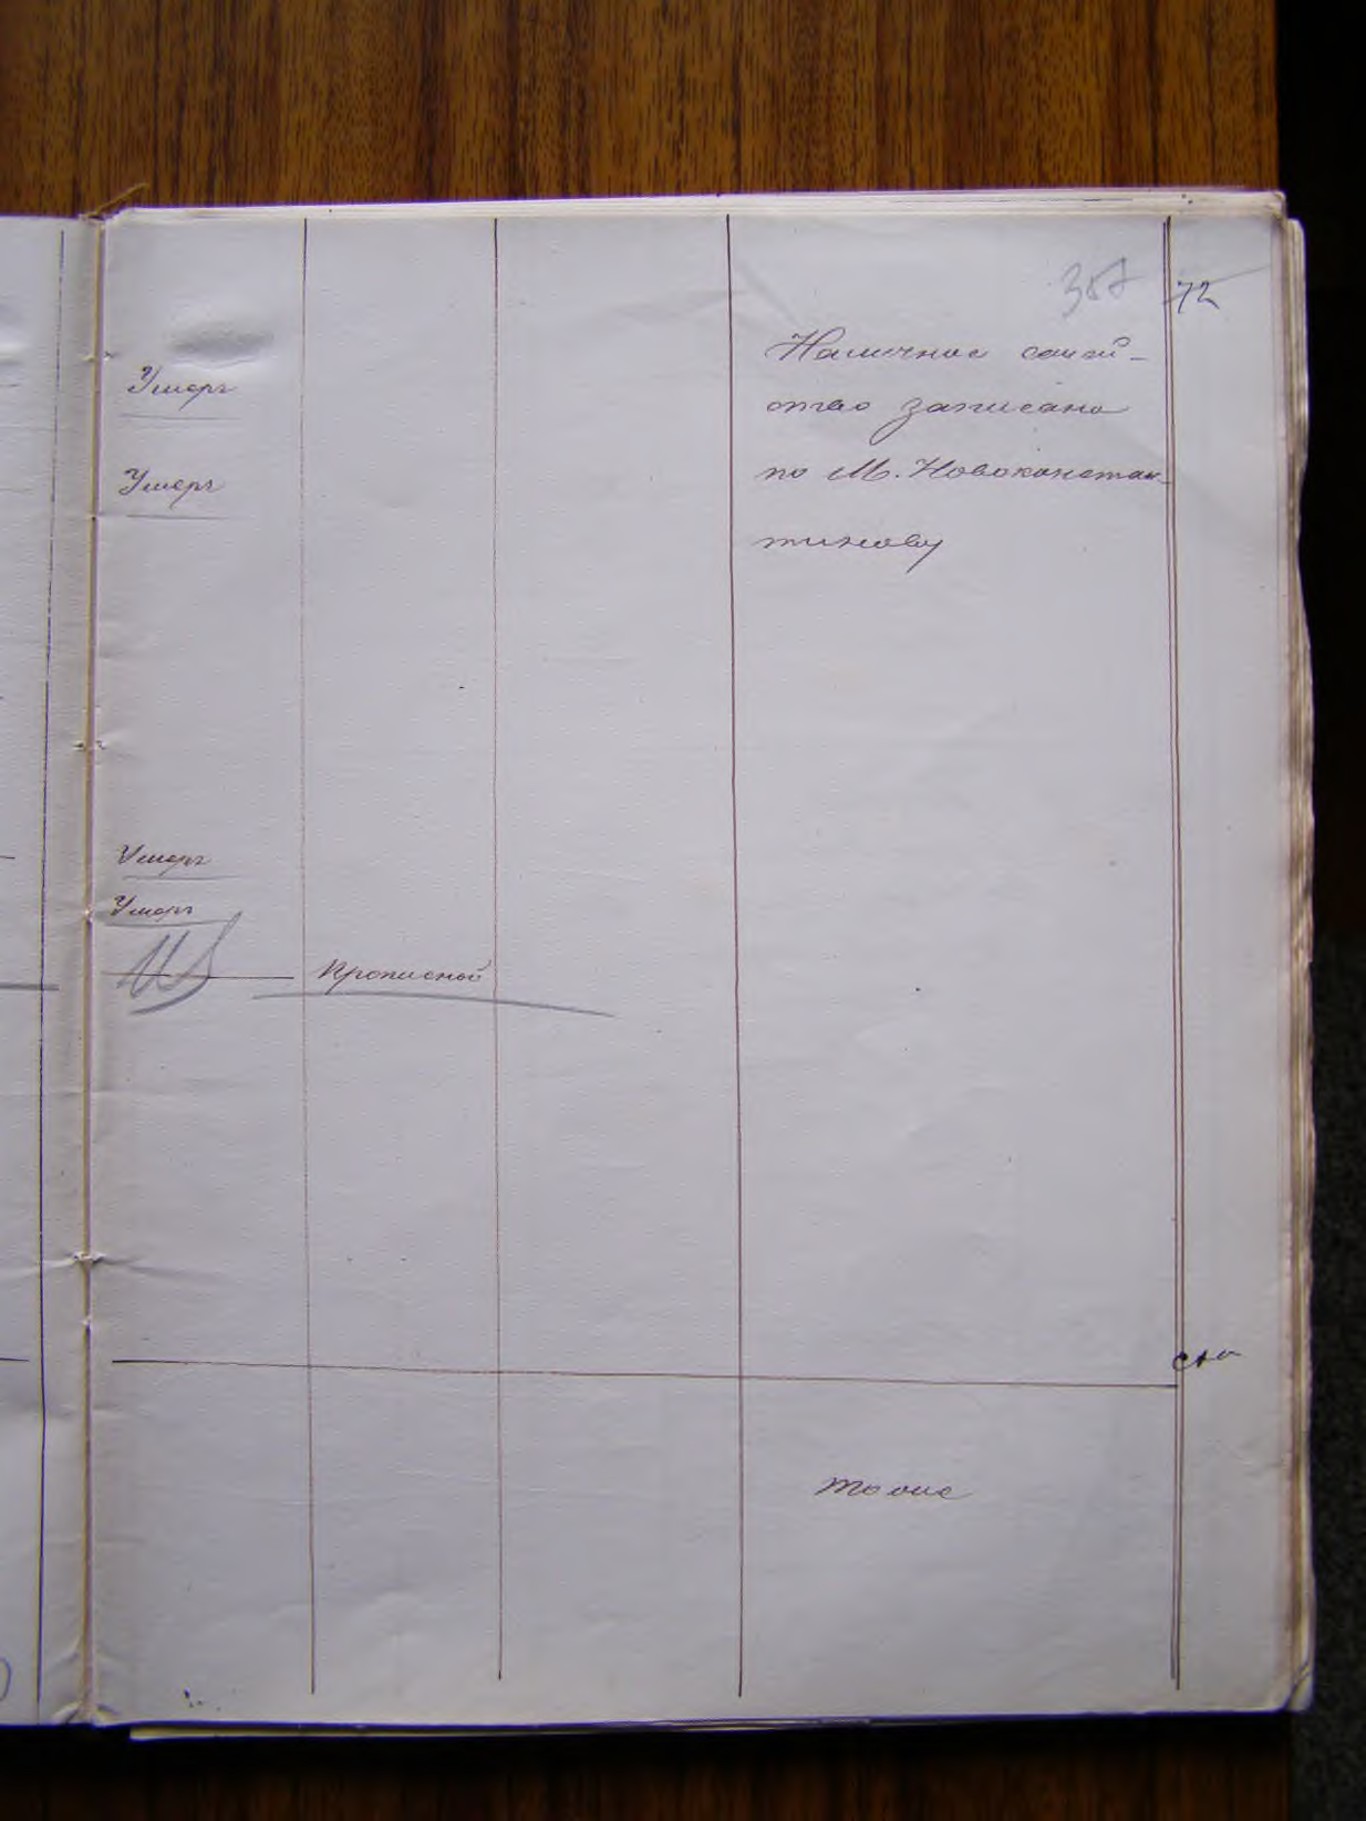 72
Умеръ
Наличное семей-
ство записано
Умеръ
по М. Новоконстан-
тинову
Умеръ
Умеръ
Прописной
тоже